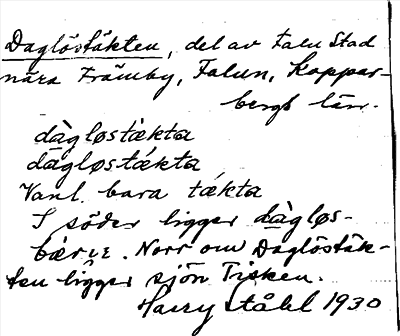 Daglöstäkten, del av Falu Stad
nära Främby, Falun, Koppar-
bergs län.
dàgløstækta
dàgløstǽkta
Vanl. bara tǽkta
I söder ligger dàgløs-
bærjɛ. Norr om Daglöstäk-
ten ligger sjön Tisken.
Harry Ståhl 1930